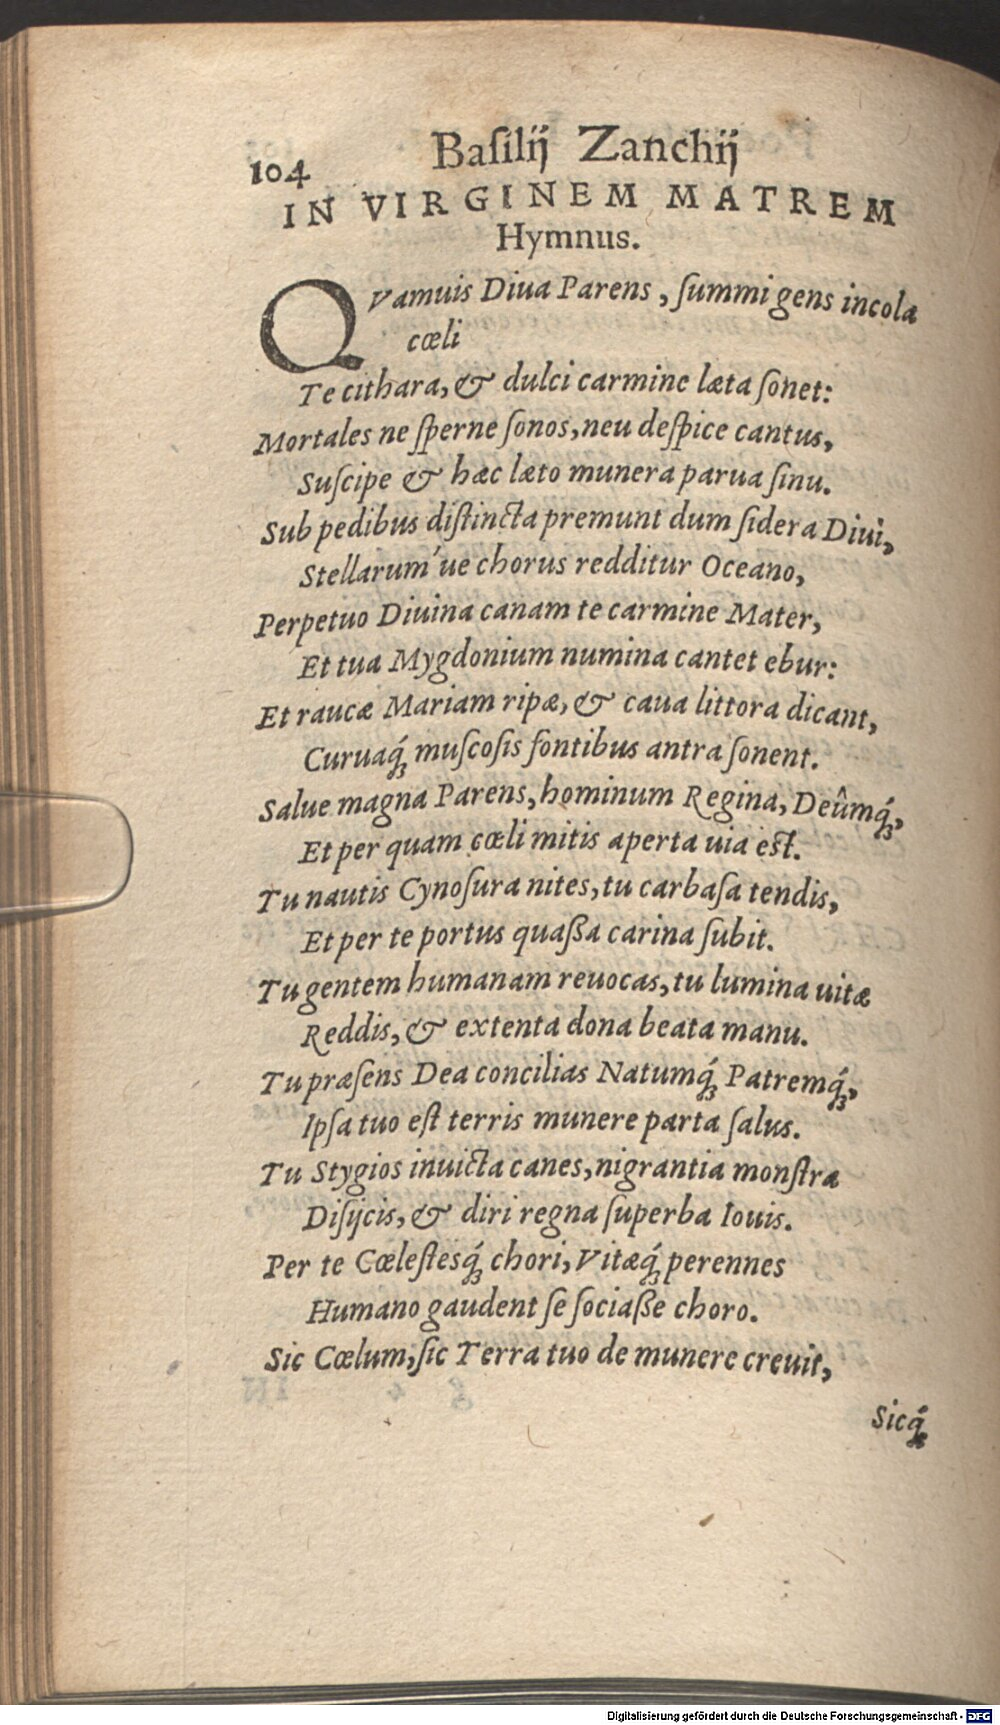 104
Baſilij Zanchij
IN VIRGINEM MATREM
Hymnus.
QVamuis Diua Parens, ſummi gens incola
cœli
Te cithara, & dulci carmine læta ſonet:
Mortales ne ſperne ſonos, neu deſpice cantus,
Suſcipe & hæc læto munera parua ſinu.
Sub pedibus diſtincta premunt dum ſidera Diui,
Stellarum´ue chorus redditur Oceano,
Perpetuo Diuina canam te carmine Mater,
Et tua Mygdonium numina cantet ebur:
Et raucæ Mariam ripæ, & caua littora dicant,
Curuaq́ꝫ muſcoſis fontibus antra ſonent.
Salue magna Parens, hominum Regina, Deûmq́ꝫ,
Et per quam cœli mitis aperta uia eſt.
Tu nautis Cynoſura nites, tu carbaſa tendis,
Et per te portus quaßa carina ſubit.
Tu gentem humanam reuocas, tu lumina uitæ
Reddis, & extenta dona beata manu.
Tu præſens Dea concilias Natumq́ꝫ Patremq́ꝫ,
Ipſa tuo eſt terris munere parta ſalus.
Tu Stygios inuicta canes, nigrantia monſtra
Diſijcis, & diri regna ſuperba Iouis.
Per te Cœleſtesq́ꝫ chori, Vitæq́ꝫ perennes
Humano gaudent ſe ſociaße choro.
Sic Cœlum, ſic Terra tuo de munere creuit,
Sicq́ꝫ
Digitalisierung gefördert durch die Deutsche Forschungsgemeinschaft - DFG